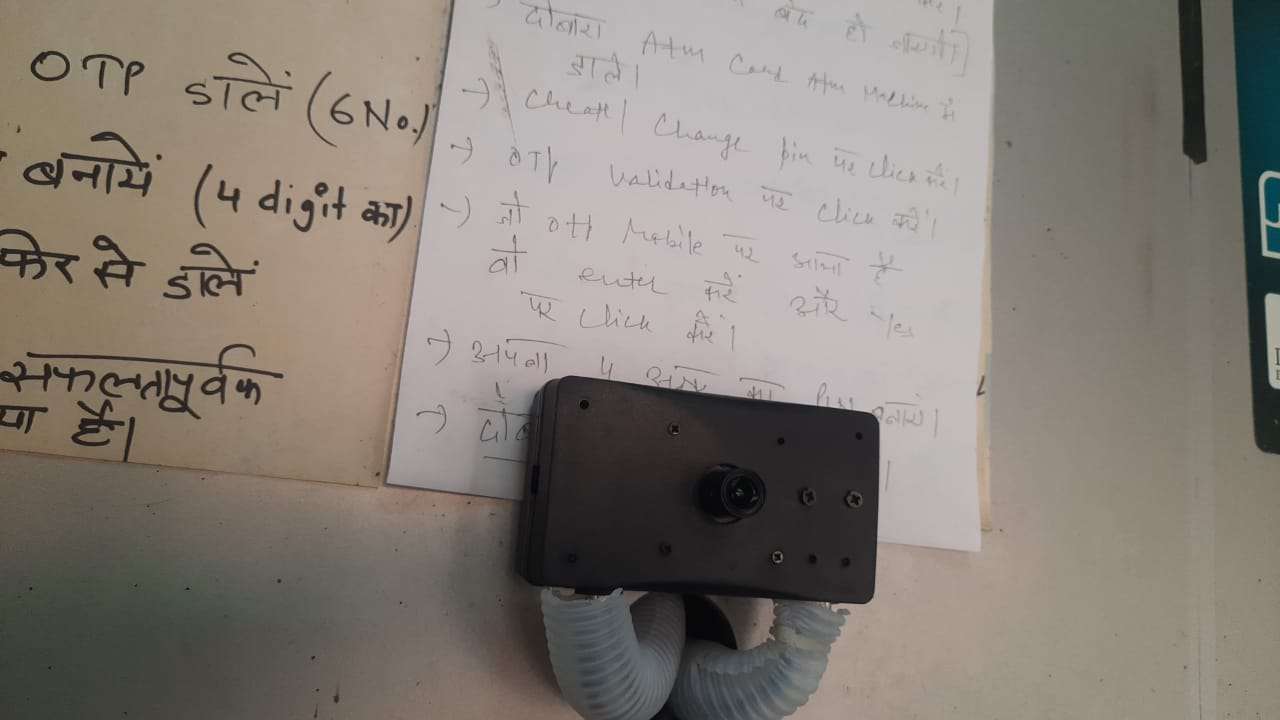 OTP डालें (6 No.)
बनायें (4 digit का)
फिर से डालें
सफलतापूर्वक
है।
बंद हो जायेगी]
दोबारा Atm Card Atm Machine में
डाले।
→ Create/ Change pin पर click करें।
→ OTP Validation पर click करें।
→ जो OTP Mobile पर आया है
वो enter करें और Yes
पर click करें।
→ अपना 4 अंक का बनाये।
→